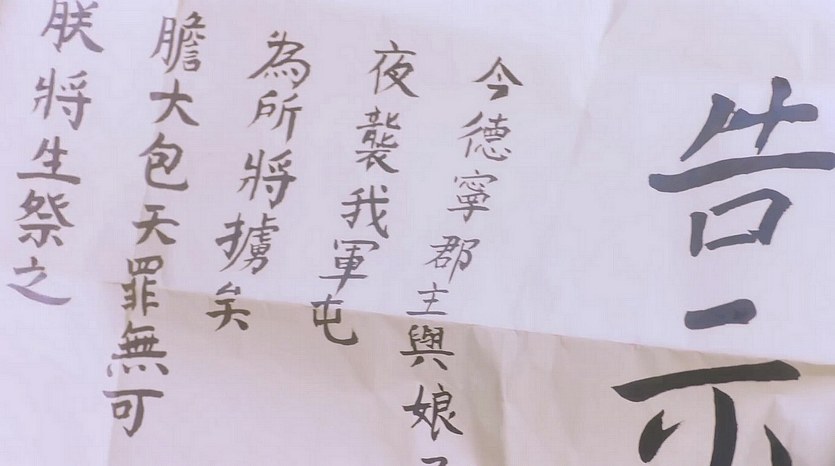 告示
今德寧郡主與娘
夜襲我軍屯
為所將擄矣
膽大包天罪無可
朕將生祭之